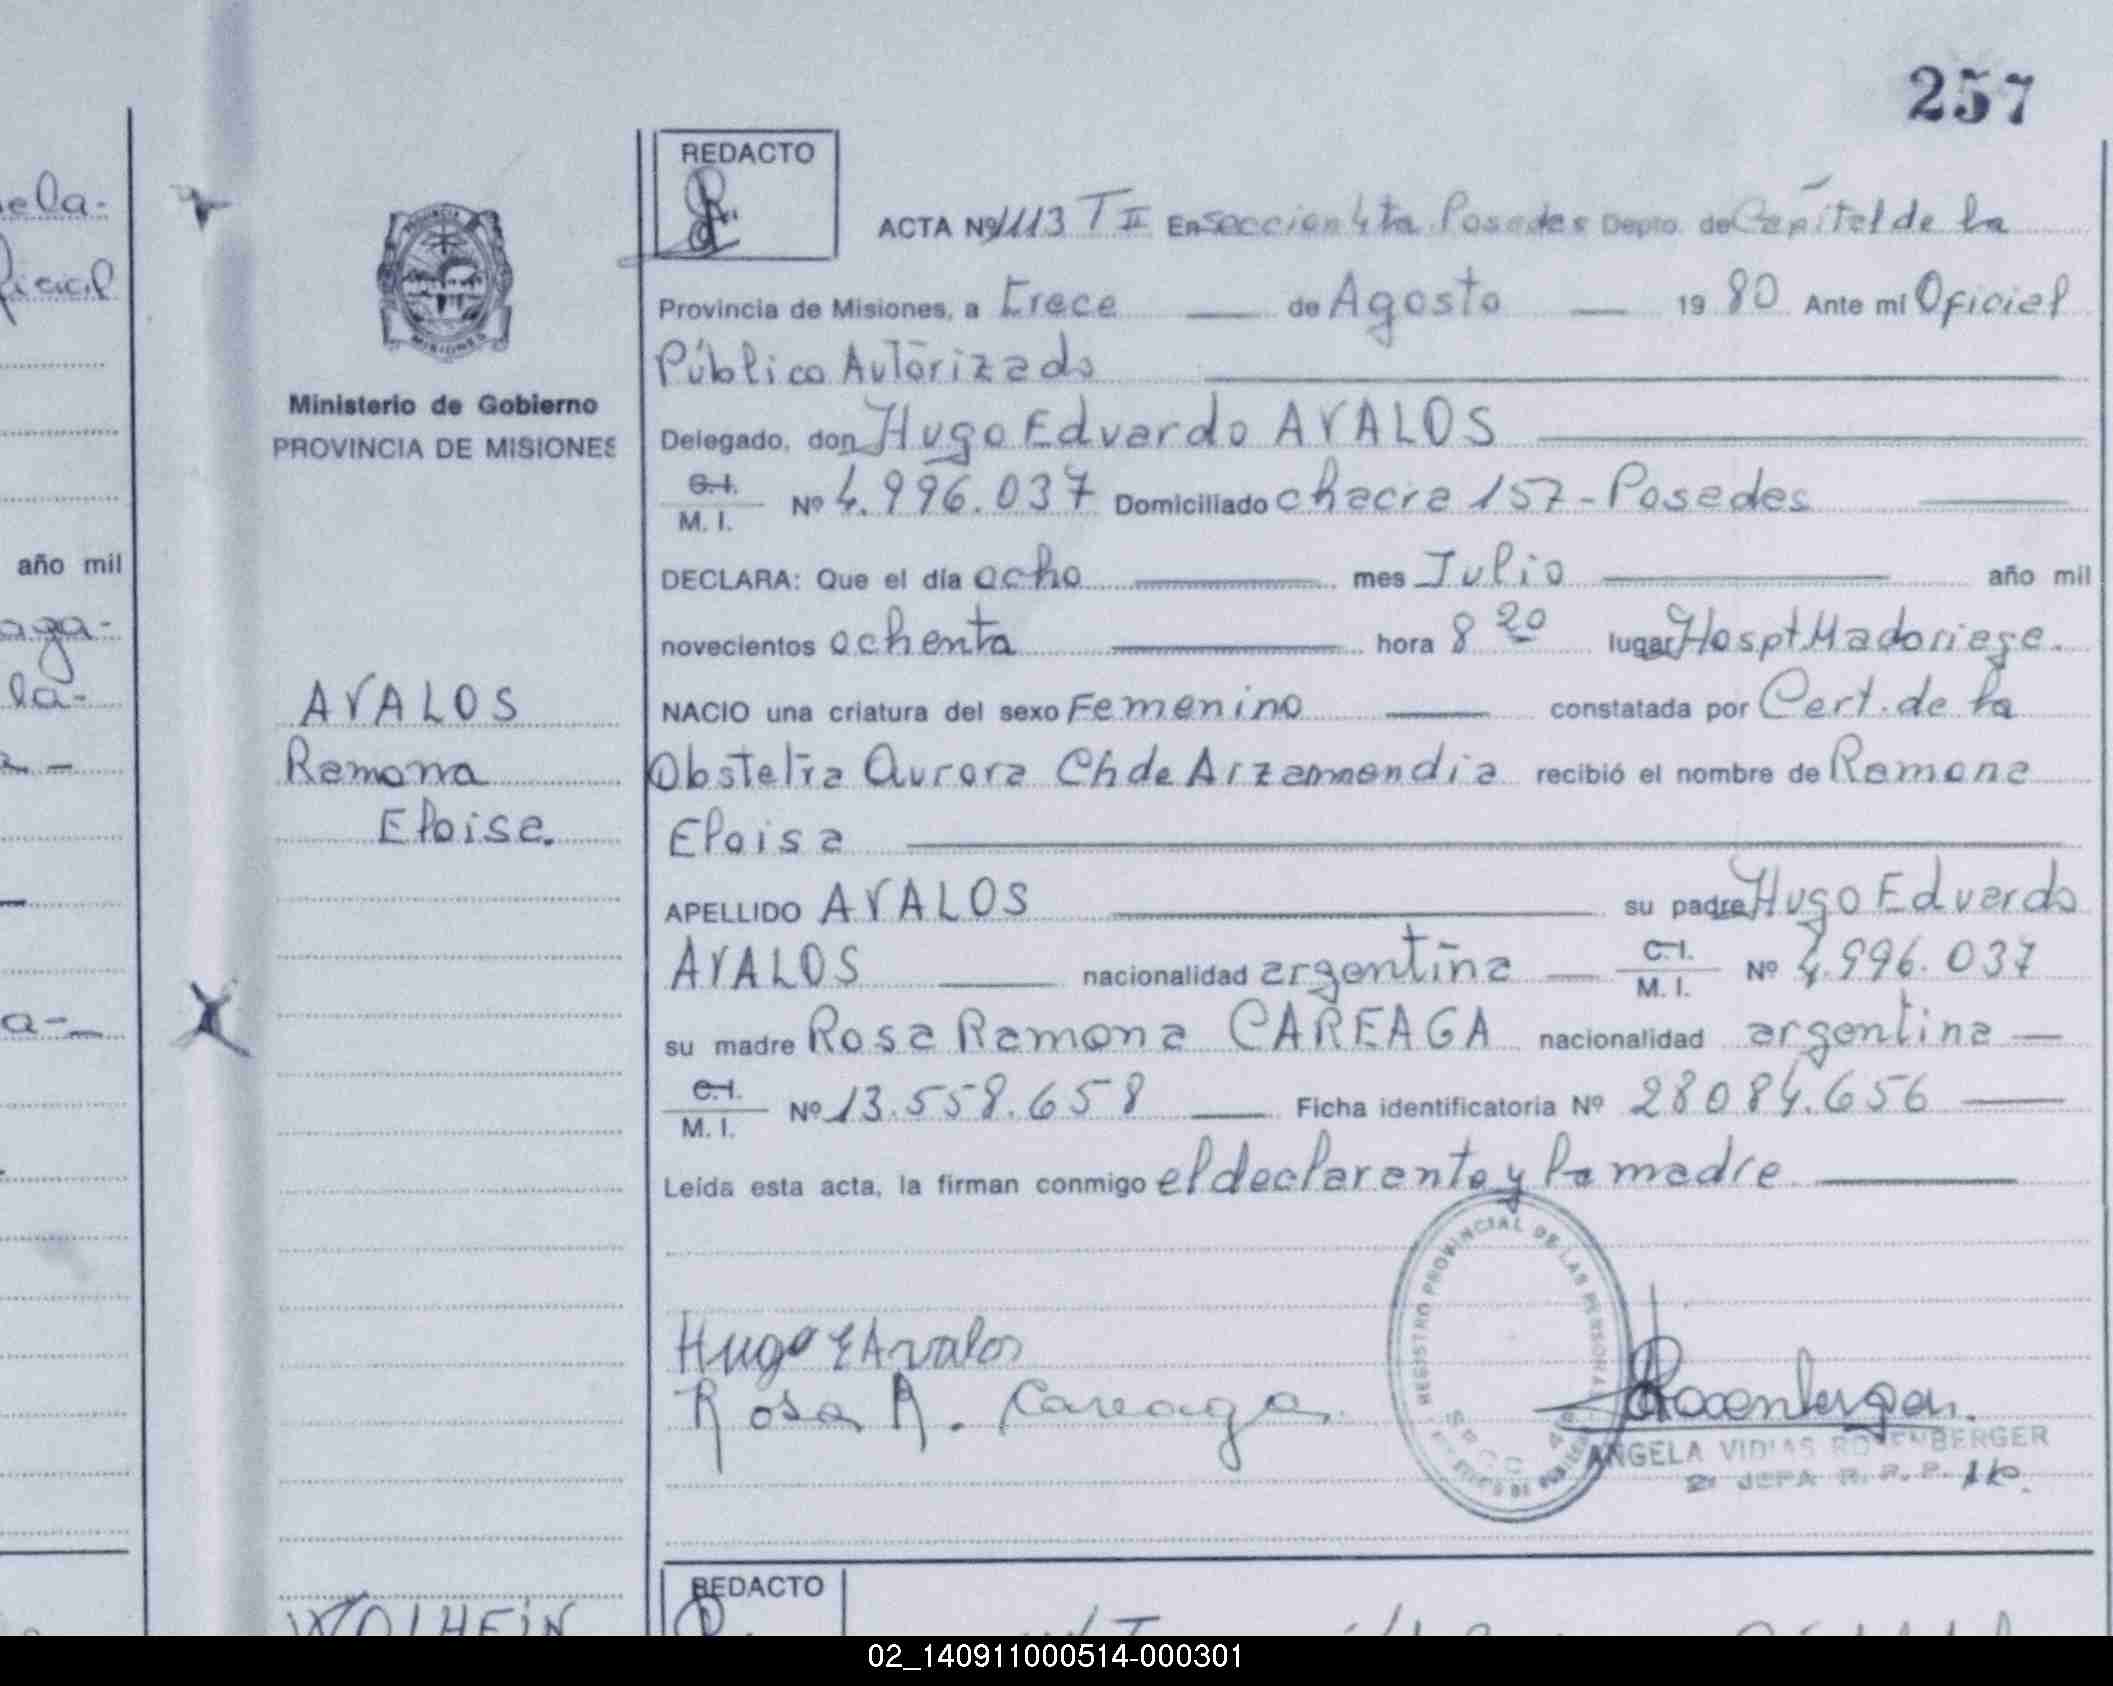 257
REDACTO
ACTA Nº 1113 T II En seccion 4ta Posadas Depto. de Capital de la
Provincia de Misiones, a trece — de Agosto — 19 80 Ante mi Oficial
Público Autorizado
Delegado, don Hugo Eduardo AVALOS
C.I.
M. I. Nº 4.996.037 Domiciliado chacra 157 - Posadas
DECLARA: Que el día ocho mes Julio año mil
novecientos ochenta hora 8 20 lugar Hospt. Madariaga.
NACIO una criatura del sexo Femenino constatada por Cert. de la
Obstetra Aurora Ch de Arzamendia recibió el nombre de Ramona
Eloisa
APELLIDO AVALOS su padre Hugo Eduardo
AVALOS nacionalidad argentina — C.I. M. I. Nº 4.996.037
su madre Rosa Ramona CAREAGA nacionalidad argentina —
C.I.
M. I. Nº 13.558.658 — Ficha identificatoria Nº 28084.656
Leída esta acta, la firman conmigo el declarante y la madre
Hugo E Avalos
Rosa R. Careaga
REGISTRO PROVINCIAL DE LAS PERSONAS
ANGELA ROSENBERGER
2º JEFA R. P. P.
Ministerio de Gobierno
PROVINCIA DE MISIONES
AVALOS
Ramona
Eloisa.
PROVINCIA
MISIONES
ela-
ficial
año mil
aga-
la-
a-
REDACTO
WOLHEIN
02_140911000514-000301